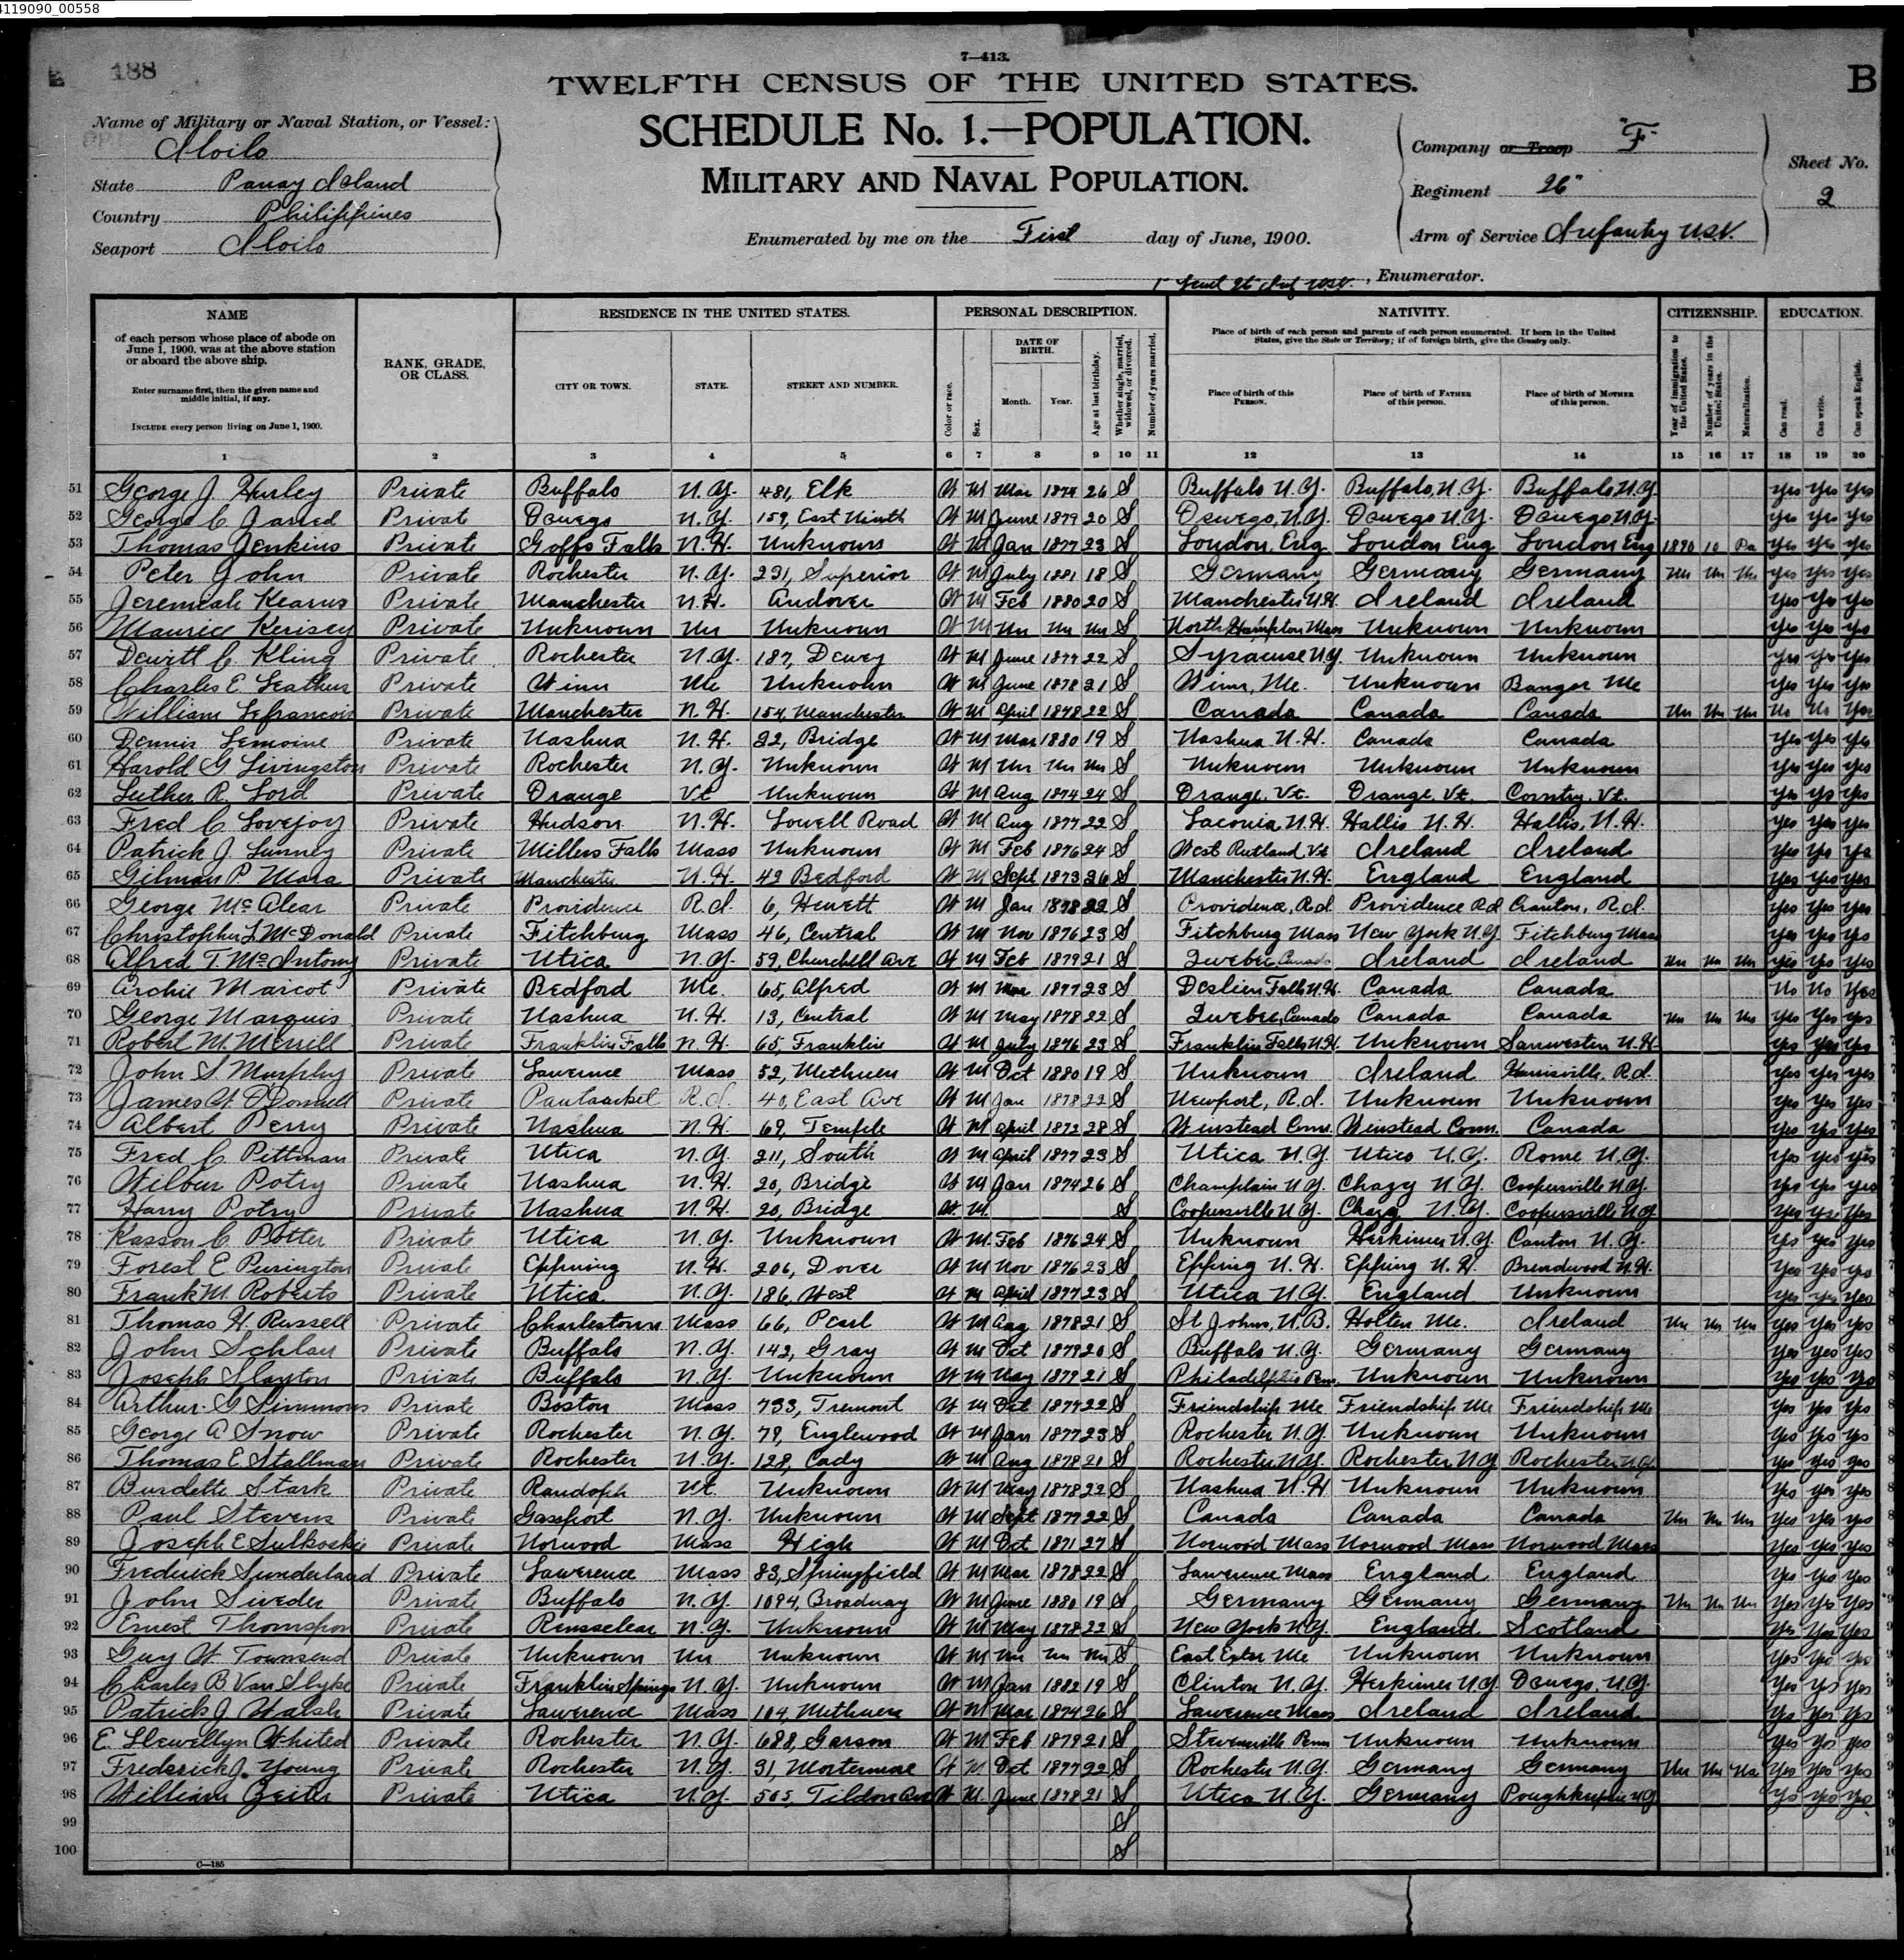 4119090_00558
188
7—413.
B
TWELFTH CENSUS OF THE UNITED STATES.
SCHEDULE No. 1.—POPULATION.
MILITARY AND NAVAL POPULATION.
Name of Military or Naval Station, or Vessel:
Iloilo
State Panay Island
Country Philippines
Seaport Iloilo
Enumerated by me on the First day of June, 1900.
1" Lieut 26" Inf USV. , Enumerator.
Company or Troop "F"
Regiment 26"
Arm of Service Infantry USV.
Sheet No.
2
NAME
of each person whose place of abode on June 1, 1900, was at the above station or aboard the above ship.
Enter surname first, then the given name and middle initial, if any.
INCLUDE every person living on June 1, 1900.
RANK, GRADE, OR CLASS.
RESIDENCE IN THE UNITED STATES.
CITY OR TOWN. STATE. STREET AND NUMBER.
PERSONAL DESCRIPTION.
Color or race. Sex. DATE OF BIRTH. Month. Year. Age at last birthday. Whether single, married, widowed, or divorced. Number of years married.
NATIVITY.
Place of birth of each person and parents of each person enumerated. If born in the United States, give the State or Territory; if of foreign birth, give the Country only.
Place of birth of this PERSON. Place of birth of FATHER of this person. Place of birth of MOTHER of this person.
CITIZENSHIP.
Year of immigration to the United States. Number of years in the United States. Naturalization.
EDUCATION.
Can read. Can write. Can speak English.
1 2 3 4 5 6 7 8 9 10 11 12 13 14 15 16 17 18 19 20
51 George J. Hurley Private Buffalo N.Y. 481, Elk W M Mar 1874 26 S Buffalo N.Y. Buffalo, N.Y. Buffalo N.Y. yes yes yes
52 George C Jarred Private Oswego N.Y. 159, East Ninth W M June 1879 20 S Oswego, N.Y. Oswego N.Y. Oswego N.Y. yes yes yes
53 Thomas Jenkins Private Goffs Falls N.H. Unknown W M Jan 1877 23 S London, Eng London Eng London Eng 1890 10 Pa yes yes yes
54 Peter John Private Rochester N.Y. 231, Superior W M July 1881 18 S Germany Germany Germany Un Un Un yes yes yes
55 Jeremiah Kearns Private Manchester N.H. Andover W M Feb 1880 20 S Manchester N.H. Ireland Ireland yes yes yes
56 Maurice Kerisey Private Unknown Un Unknown W M Un Un Un S North Hampton Mass Unknown Unknown yes yes yes
57 Dewitt C Kling Private Rochester N.Y. 187, Dewey W M June 1877 22 S Syracuse N.Y. Unknown Unknown yes yes yes
58 Charles E. Leathers Private Winn Me Unknown W M June 1878 21 S Winn, Me. Unknown Bangor Me yes yes yes
59 William Lefrancois Private Manchester N.H. 154, Manchester W M April 1878 22 S Canada Canada Canada Un Un Un No No Yes
60 Dennis Lemoine Private Nashua N.H. 22, Bridge W M Mar 1880 19 S Nashua N.H. Canada Canada yes yes yes
61 Harold G. Livingston Private Rochester N.Y. Unknown W M Un Un Un S Unknown Unknown Unknown yes yes yes
62 Luther R. Lord Private Orange Vt Unknown W M Aug 1874 24 S Orange, Vt. Orange, Vt. Corntry, Vt. yes yes yes
63 Fred C Lovejoy Private Hudson N.H. Lowell Road W M Aug 1877 22 S Laconia, N.H. Hallis N.H. Hallis, N.H. yes yes yes
64 Patrick J. Lunney Private Millers Falls Mass Unknown W M Feb 1876 24 S West Rutland, Vt Ireland Ireland yes yes yes
65 Gilman P. Mara Private Manchester N.H. 42 Bedford W M Sept 1873 26 S Manchester N.H. England England yes yes yes
66 George McAlear Private Providence R.I. 6, Hewett W M Jan 1878 22 S Providence, R.I. Providence R.I Cranton, R.I. yes yes yes
67 Christopher L McDonald Private Fitchburg Mass 46, Central W M Nov 1876 23 S Fitchburg Mass New York N.Y. Fitchburg Mass yes yes yes
68 Alfred T. McIntomy Private Utica N.Y. 59, Churchill Ave W M Feb 1879 21 S Quebec Canada Ireland Ireland Un Un Un yes yes yes
69 Archie Marcot Private Bedford Me. 65, Alfred W M Mar 1877 23 S Falls N.H. Canada Canada No No Yes
70 George Marquis Private Nashua N.H. 13, Central W M May 1878 22 S Quebec, Canada Canada Canada Un Un Un yes yes yes
71 Robert M. Merrill Private Franklin Falls N.H. 65, Franklin W M July 1876 23 S Franklin Falls N.H. Unknown N.H. yes yes yes
72 John S. Murphy Private Lawrence Mass 52, Methuen W M Oct 1880 19 S Unknown Ireland Harrisville, R.I. yes yes yes
73 James W. O'Donnell Private Pawtucket R.I. 40, East Ave W M Jan 1878 22 S Newport, R.I. Unknown Unknown yes yes yes
74 Albert Perry Private Nashua N.H. 69, Temple W M April 1872 28 S Winstead Conn. Winstead Conn. Canada yes yes yes
75 Fred C. Pittman Private Utica N.Y. 211, South W M April 1877 23 S Utica N.Y. Utica N.Y. Rome N.Y. yes yes yes
76 Wilbur Potry Private Nashua N.H. 20, Bridge W M Jan 1874 26 S Champlain N.Y. Chazy N.Y. Coopersville N.Y. yes yes yes
77 Harry Potry Private Nashua N.H. 20, Bridge W M S Coopersville N.Y. Chazy N.Y. Coopersville N.Y. yes yes yes
78 Kasson C. Potter Private Utica N.Y. Unknown W M Feb 1876 24 S Unknown Herkimer N.Y. Canton N.Y. yes yes yes
79 Forest E Purington Private Eppning N.H. 206, Dover W M Nov 1876 23 S Epping N.H. Epping N.H. Brendwood N.H. yes yes yes
80 Frank M. Roberts Private Utica N.Y. 186, West W M April 1877 23 S Utica N.Y. England Unknown yes yes yes
81 Thomas H. Russell Private Charlestown Mass 66, Pearl W M Aug 1878 21 S St Johns, N.B. Holten Me. Ireland Un Un Un yes yes yes
82 John Schlau Private Buffalo N.Y. 142, Gray W M Oct 1879 20 S Buffalo N.Y. Germany Germany yes yes yes
83 Joseph Slayton Private Buffalo N.Y. Unknown W M May 1879 21 S Philadelphia Penn. Unknown Unknown yes yes yes
84 Arthur G Simmons Private Boston Mass 733, Tremont W M Oct 1877 22 S Friendship Me Friendship Me Friendship Me yes yes yes
85 George A Snow Private Rochester N.Y. 79, Englewood W M Jan 1877 23 S Rochester N.Y. Unknown Unknown yes yes yes
86 Thomas E. Stallman Private Rochester N.Y. 128, Cady W M Aug 1878 21 S Rochester N.Y. Rochester N.Y Rochester N.Y. yes yes yes
87 Burdette Stark Private Randolph Vt. Unknown W M May 1878 22 S Nashua N.H Unknown Unknown yes yes yes
88 Paul Stevens Private Gassport N.Y. Unknown W M Sept 1877 22 S Canada Canada Canada Un Un Un yes yes yes
89 Joseph E Sulkoskie Private Norwood Mass High W M Oct 1871 27 S Norwood Mass Norwood Mass Norwood Mass yes yes yes
90 Frederick Sunderland Private Lawerence Mass 83, Springfield W M Mar 1878 22 S Lawerence Mass England England yes yes yes
91 John Sweder Private Buffalo N.Y. 1094, Broadway W M June 1880 19 S Germany Germany Germany Un Un Un yes yes yes
92 Ernest Thompson Private Rensselear N.Y. Unknown W M May 1878 22 S New York N.Y. England Scotland yes yes yes
93 Guy W Townsend Private Unknown Un Unknown W M Un Un Un S East Exter Me Unknown Unknown yes yes yes
94 Charles B Van Slyke Private Franklin Springs N.Y. Unknown W M Jan 1882 19 S Clinton N.Y. Herkimer N.Y. Oswego, N.Y. yes yes yes
95 Patrick J Walsh Private Lawerence Mass 104, Methuen W M Mar 1874 26 S Lawerence Mass Ireland Ireland yes yes yes
96 E. Llewellyn Whited Private Rochester N.Y. 688, Garson W M Feb 1879 21 S Stevensville Penn Unknown Unknown yes yes yes
97 Frederick J. Young Private Rochester N.Y. 31, W M Oct 1877 22 S Rochester N.Y. Germany Germany Un Un Un yes yes yes
98 William Zeith Private Utica N.Y. 505, Tildon Ave W M June 1878 21 S Utica N.Y. Germany Poughkeepsie N.Y yes yes yes
99 S
100 S
C—185